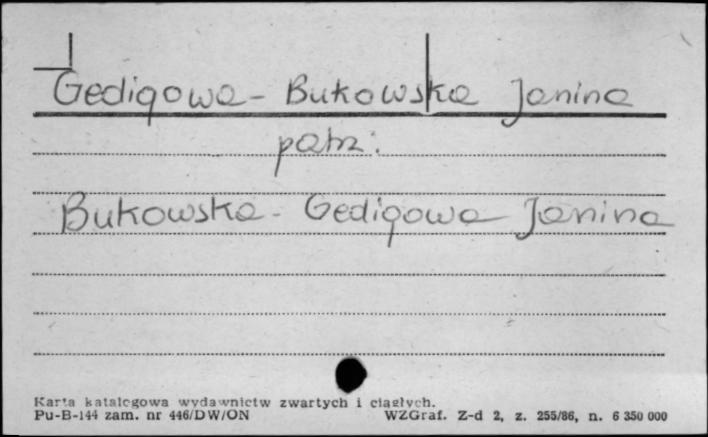 Gedigowa - Bukowska Janina
patrz:
Bukowska - Gedigowa Janina
Karta katalogowa wydawnictw zwartych i ciągłych.
Pu-B-144 zam. nr 446/DW/ON WZGraf. Z-d 2, z. 255/86, n. 6 350 000